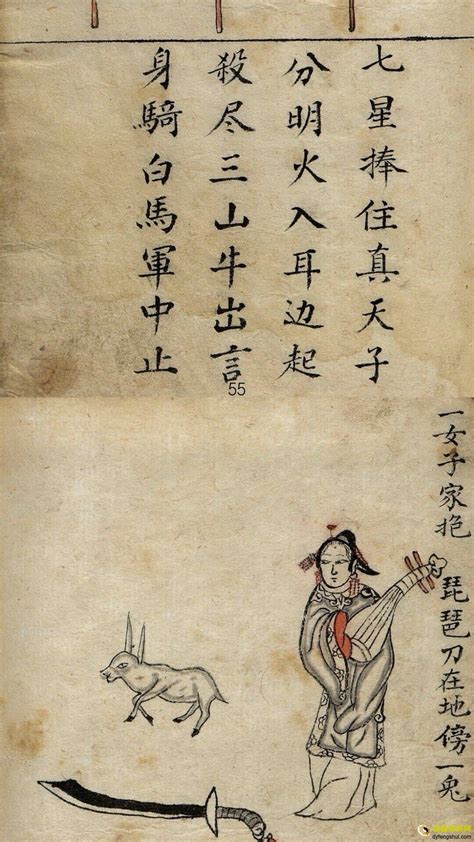 七星捧住真天子
分明火入耳边起
殺尽三山牛岀言
身騎白馬軍中止
55
一女子家抱 琵琶刀在地傍一兔
dyfengshui.com